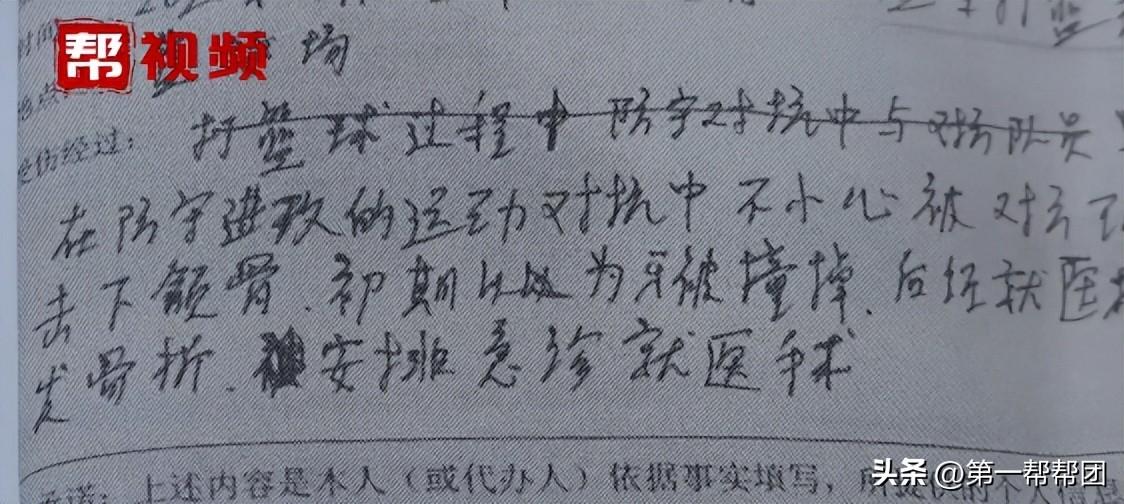 帮视频
场
受伤经过：打篮球过程中防守对抗中与对方队员
在防守进攻的运动对抗中不小心被对方
击下颌骨、初期以为牙被撞掉、后经就医
发骨折、安排急诊就医手术
承诺：上述内容是本人（或代办人）依据事实填写，所
头条 @第一帮帮团